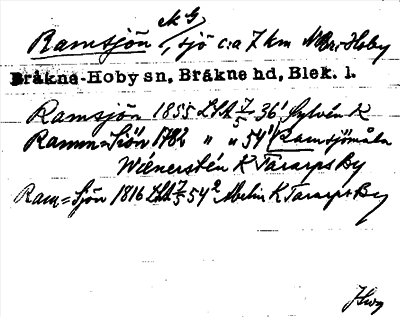 NG
Ramsjön, sjö c:a 7 km N Br:Hoby
Bråkne-Hoby sn, Bråkne hd, Blek. l.
Ramsjön 1855 LSA 7/5 36¹ Sylvén K
Ramm=Siön 1782 " " 54¹ (Ramsjömåla
Wienerstén K Tararps By
Ram=Sjön 1816 LSA 7/5 54² Abelin K Tararps By